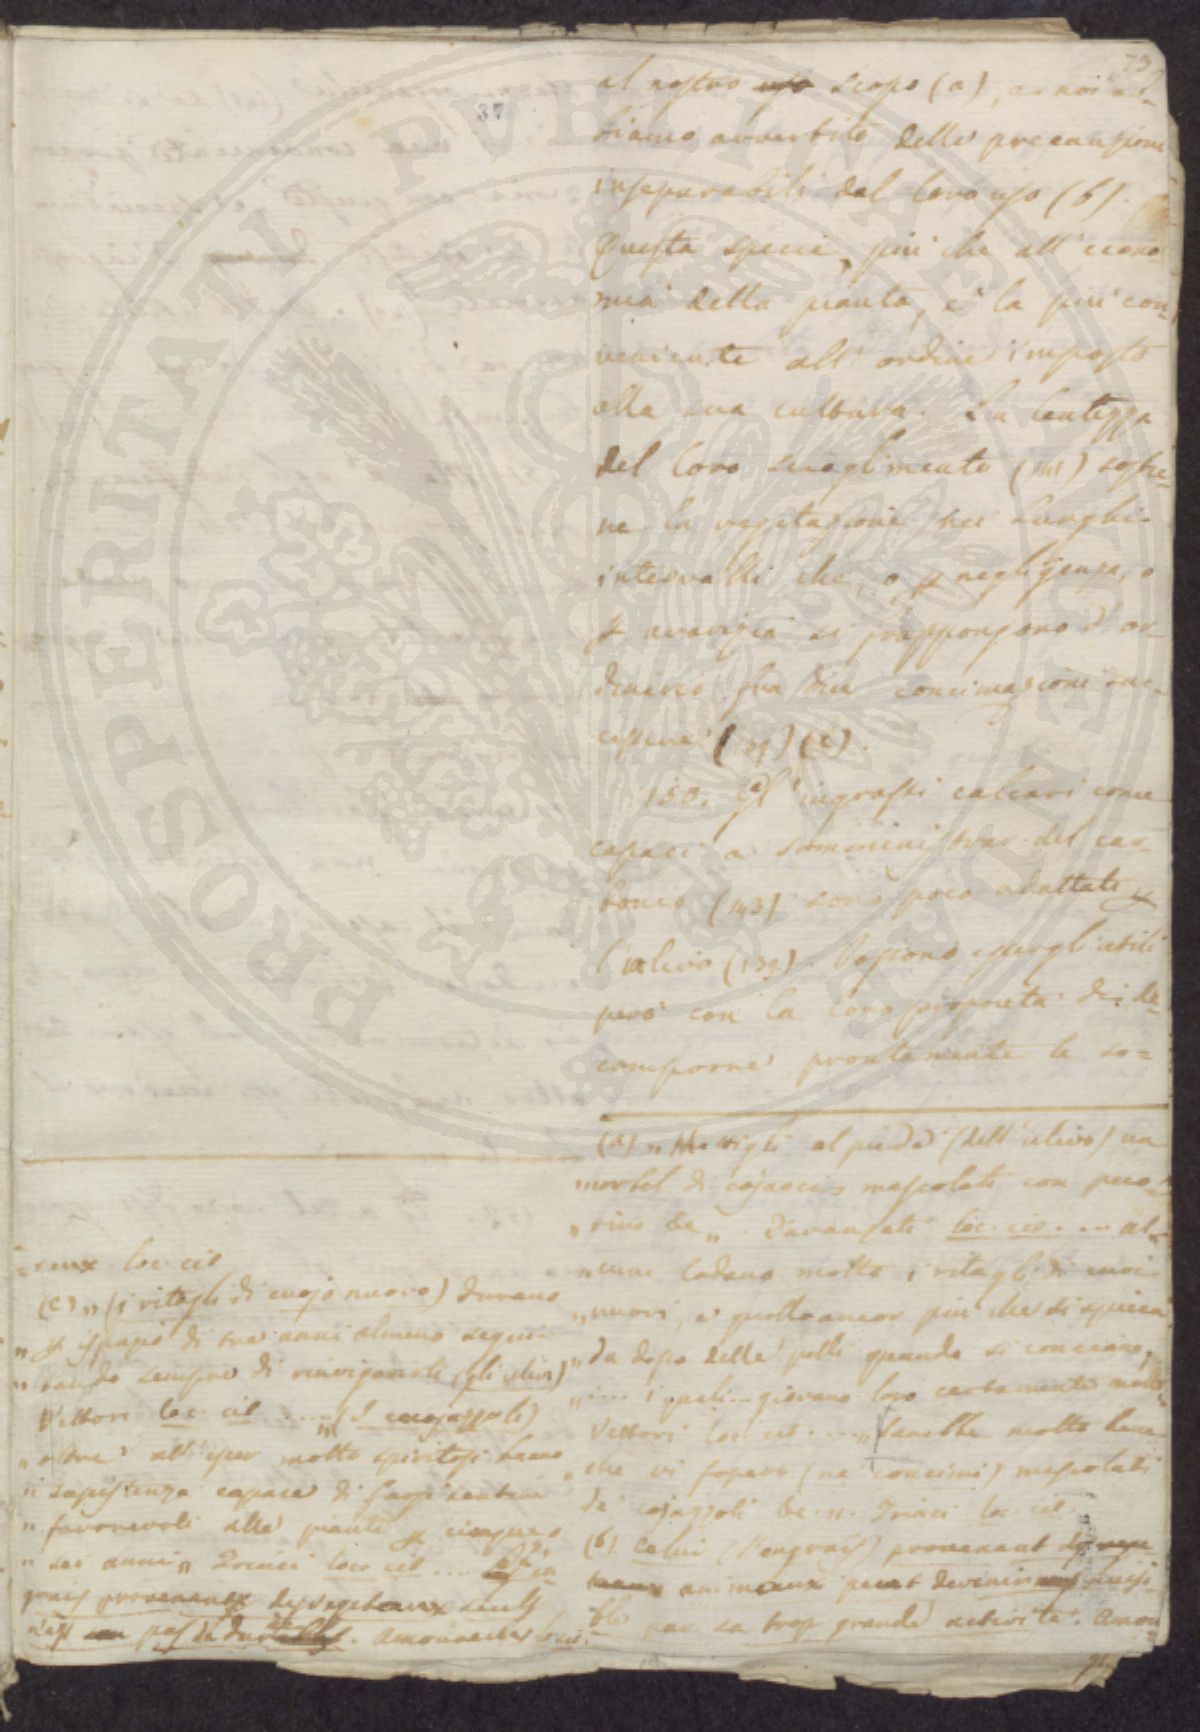 73
37
al nostro uso scopo (a), e noi ab-
biamo avvertito delle precauzioni
inseparabili dal loro uso (b).
Questa specie, più che all'econo
mia della pianta, è la più con-
veniente all'ordine imposto
alla sua cultura. La lentezza
del loro scioglimento (141) sostie-
ne la vegetazione nei lunghi
intervalli che, o p negligenza, o
p avarizia si frappongono d'or-
dinario fra due concimazioni suc-
cessive (139) (c).
150. Gl'ingrassi calcari come
capaci a somministrar del car-
bonio (143) sono poco adattati p
l'ulivo (139). Possono essergli utili
però con la loro proprietà di de-
comporre prontamente le so-
(a) „ Mettigli al piede (dell'ulivo) un
„ mortel di cojaccio mescolato con peco-
„ rino &c „. Davanzati loc. cit. ... al-
„ cuni lodano molto i ritagli di cuoi
„ nuovi, e quello ancor più che si spicca
„ da dopo delle pelli quando si conciano,
„ .... i quali... giovano loro certamente molto
Vettori loc. cit. .... „ Sarebbe molto bene
„ che vi fossero (ne' concimi) mescolati
de' cojazzoli &c. „. Trinci loc. cit.
(b) Celui (l'engrais) provenant des
animaux peut devenir nuisi-
ble par sa trop grande activité. Amou-
=reux loc. cit
(c) „ (i ritagli di cuojo nuovo) durano
„ p ispazio di tre anni almeno segui-
„ tando sempre di rinvigorirli (gli ulivi)
Vettori loc. cit ..... „ (I cuojazzoli)
„ oltre all'esser molto spiritosi hanno
„ sussistenza capace di farsi sentire
„ favorevoli alle piante p cinque, o
„ sei anni „ Trinci loc. cit .... L'en-
grais provenant des vegetaux seuls
n'est pas si durable. Amoureux loc. cit.